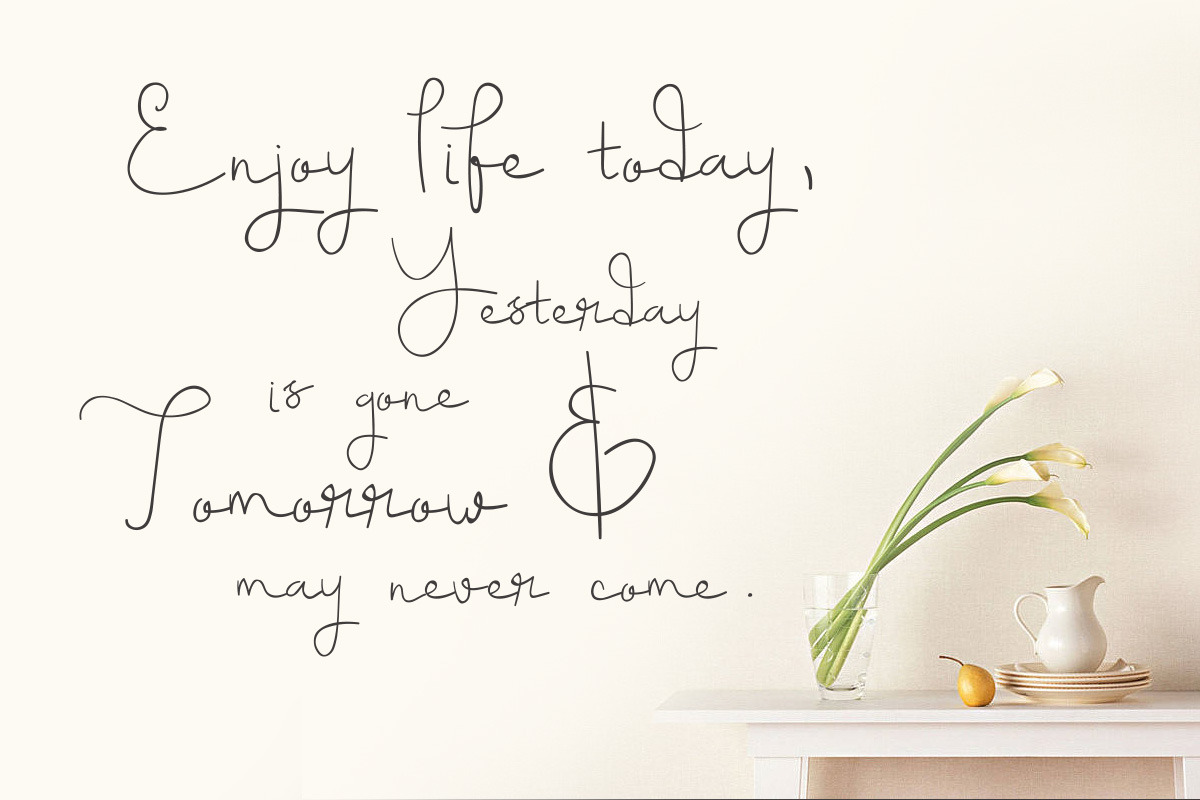 Enjoy life today,
Yesterday
is gone &
Tomorrow
may never come.